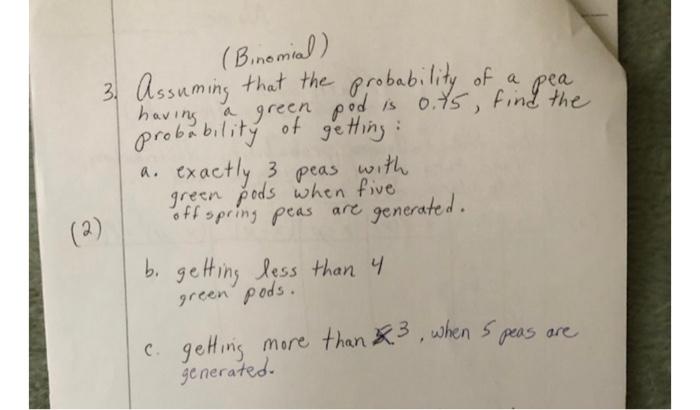 (Binomial)
3. Assuming that the probability of a pea
having a green pod is 0.75, find the
probability of getting :
a. exactly 3 peas with
green pods when five
offspring peas are generated.
(2)
b. getting less than 4
green pods.
c. getting more than 3, when 5 peas are
generated.